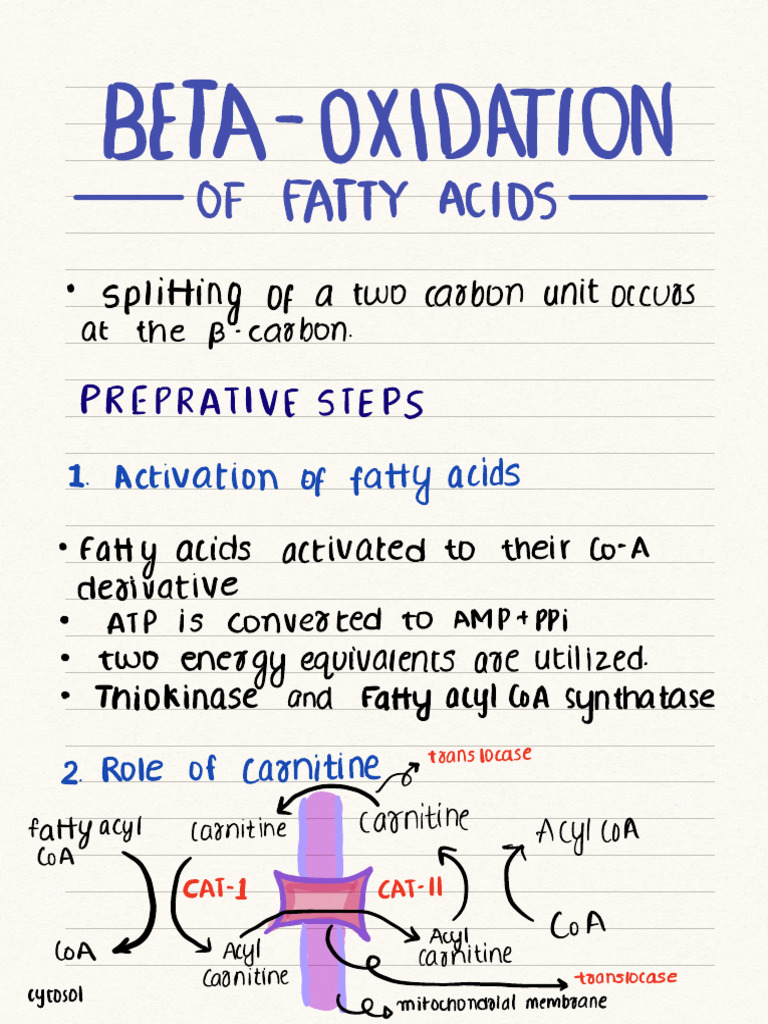 BETA-OXIDATION
OF FATTY ACIDS
• Splitting of a two carbon unit occurs
at the β-carbon.
PREPRATIVE STEPS
1. Activation of fatty acids
• Fatty acids activated to their Co-A
derivative
• ATP is converted to AMP+PPi
• two energy equivalents are utilized.
• Thiokinase and Fatty acyl CoA synthatase
2. Role of Carnitine
translocase
fatty acyl
CoA
Carnitine
Carnitine
Acyl CoA
CAT-1
CAT-II
CoA
Acyl
Carnitine
Acyl
carnitine
CoA
cytosol
translocase
mitochondrial membrane